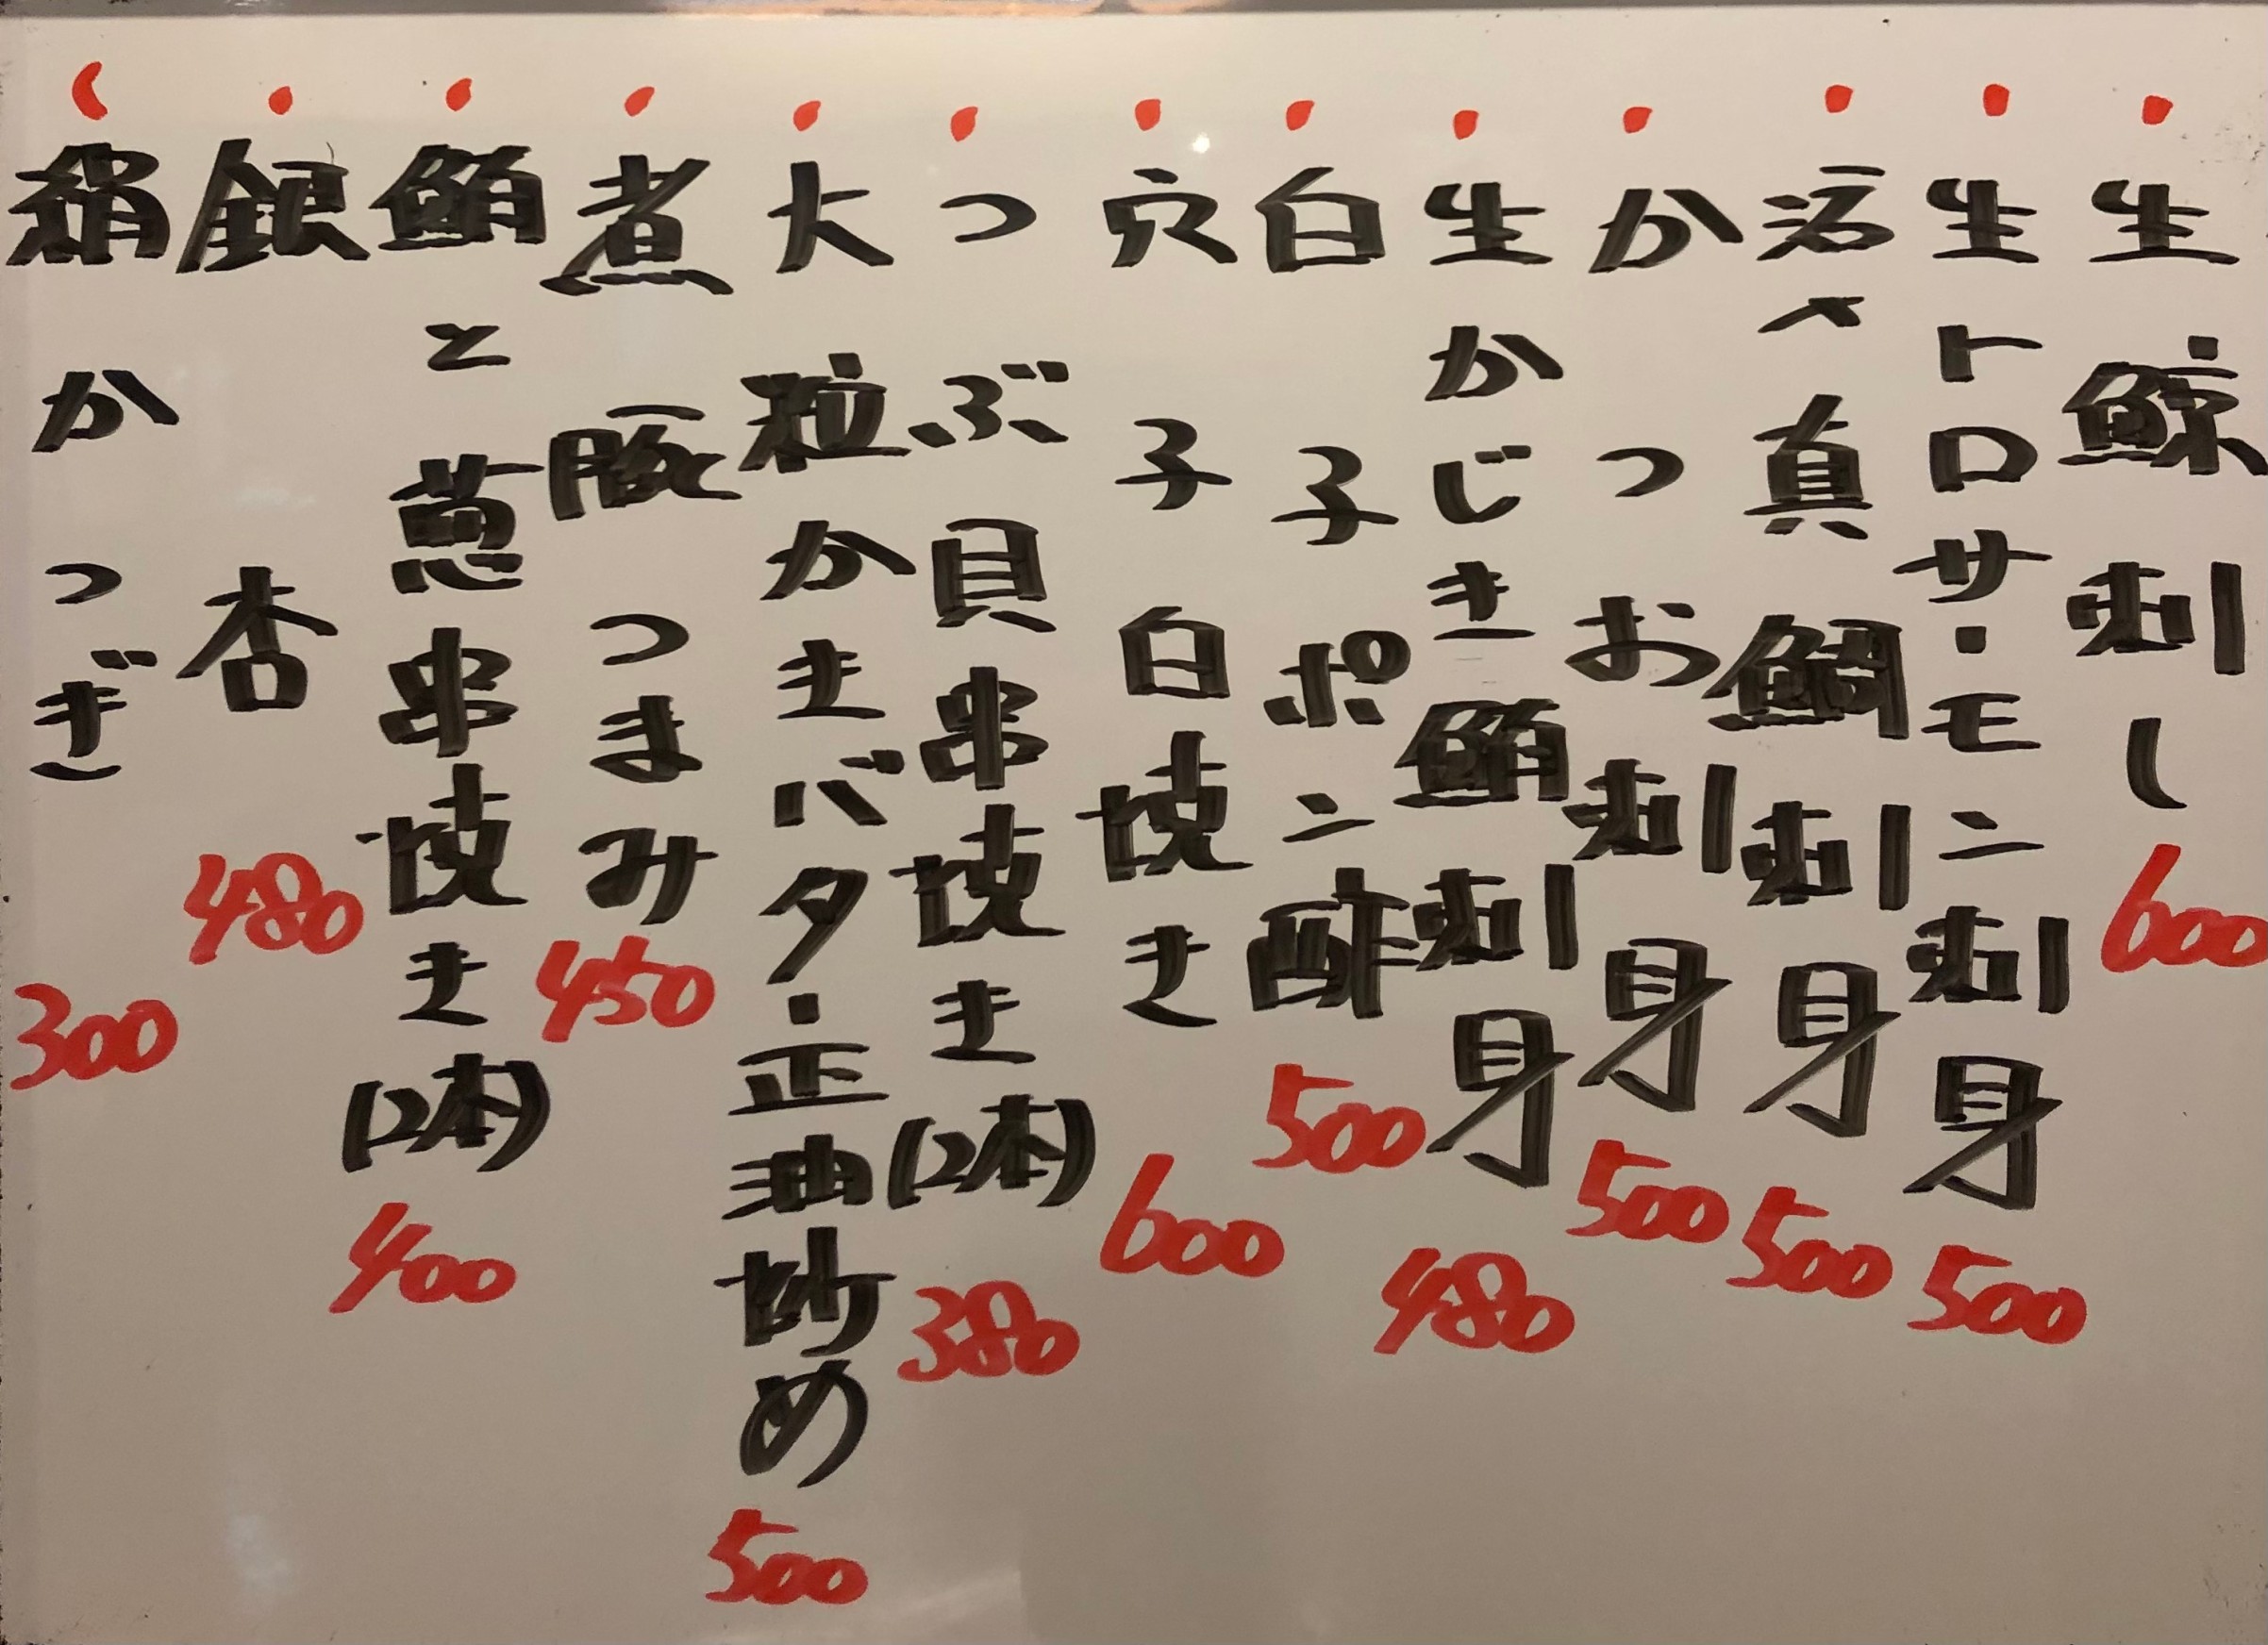 生鯨刺し 600
生トロサーモン刺身 500
活〆真鯛刺身 500
かつお刺身 500
生かじき鮪刺身 480
白子ポン酢 500
穴子白焼き 600
つぶ貝串焼き(2本) 380
大粒かきバター正油炒め 500
煮豚つまみ 450
鮪と葱串焼き(2本) 400
銀杏 480
絹かつぎ 300